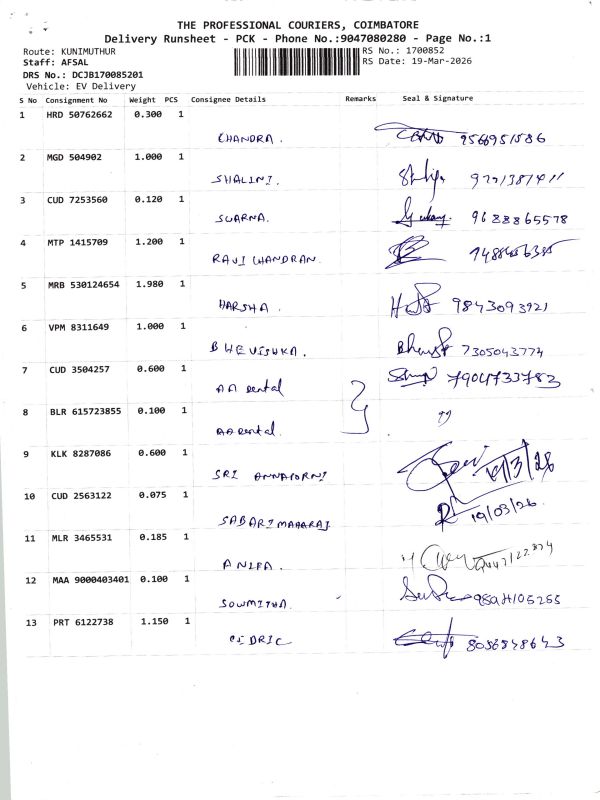 THE PROFESSIONAL COURIERS, COIMBATORE
Delivery Runsheet - PCK - Phone No.:9047080280 - Page No.:1
Route: KUNIMUTHUR RS No.: 1700852
Staff: AFSAL RS Date: 19-Mar-2026
DRS No.: DCJB170085201
Vehicle: EV Delivery
S No Consignment No Weight PCS Consignee Details Remarks Seal & Signature
1 HRD 50762662 0.300 1
CHANDRA. 9566951586
2 MGD 504902 1.000 1
SHALINI.
3 CUD 7253560 0.120 1
SUARNA. 9688865578
4 MTP 1415709 1.200 1
RAVI CHANDRAN.
5 MRB 530124654 1.980 1
HARSHA. 9843093921
6 VPM 8311649 1.000 1
BHEVISHKA. 7305043774
7 CUD 3504257 0.600 1
AA rental 7904733783
8 BLR 615723855 0.100 1
AA rental.
9 KLK 8287086 0.600 1
SRI ANNAPORNI 19/3/26
10 CUD 2563122 0.075 1
SABARI MAHARAJ 19/03/26
11 MLR 3465531 0.185 1
ANIFA.
12 MAA 9000403401 0.100 1
SOWMITHA.
13 PRT 6122738 1.150 1
CIDRIC 8056848643